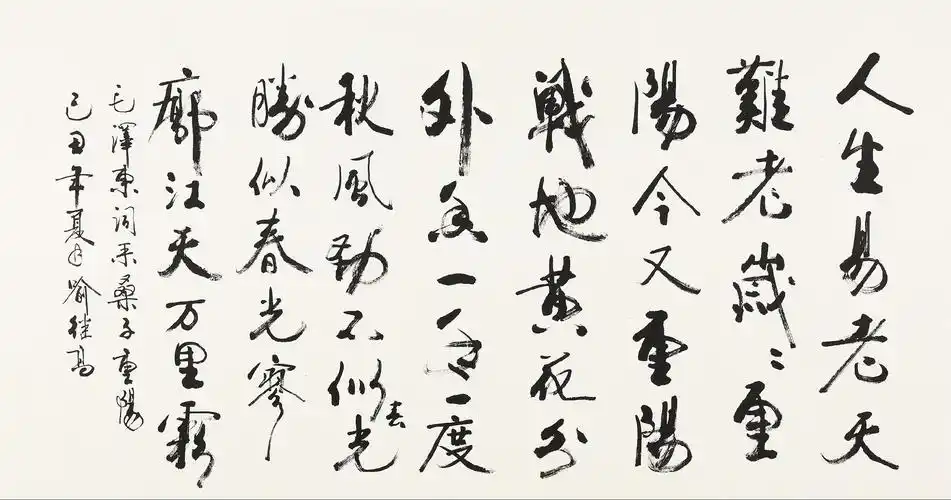 人生易老天
難老歲〻重
陽今又重陽
戰地黄花分
外香一年一度
秋風勁不似春光
勝似春光寥
廓江天万里霜
毛澤東詞采桑子重陽
己丑年夏月喻继高